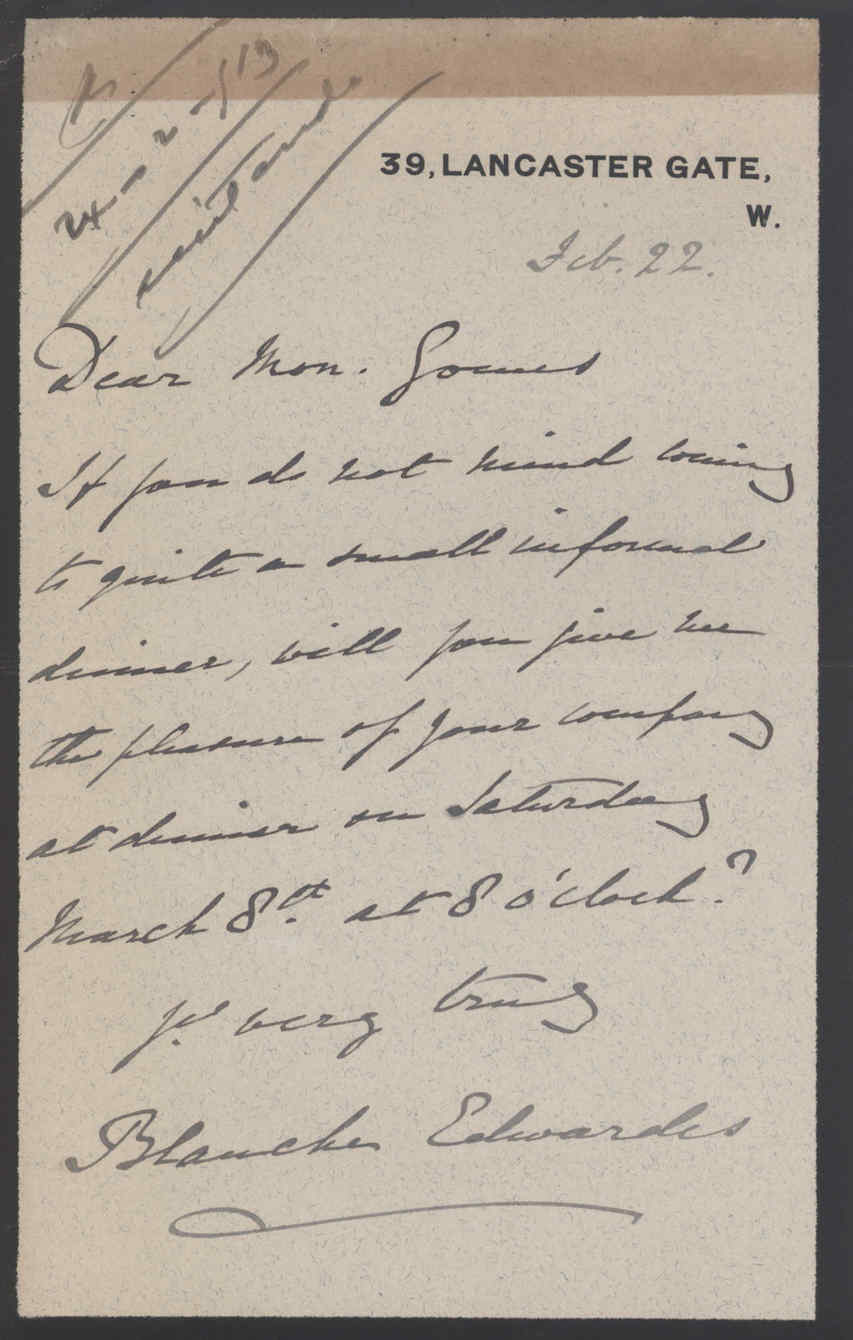 24-2-913
39, LANCASTER GATE,
W.
Feb. 22.
Dear Mon. Gomes
If you do not mind coming
to quite a small informal
dinner, will you give me
the pleasure of your company
at dinner on Saturday
March 8th. at 8 o'clock?
yrs very truly
Blanche Edwardes